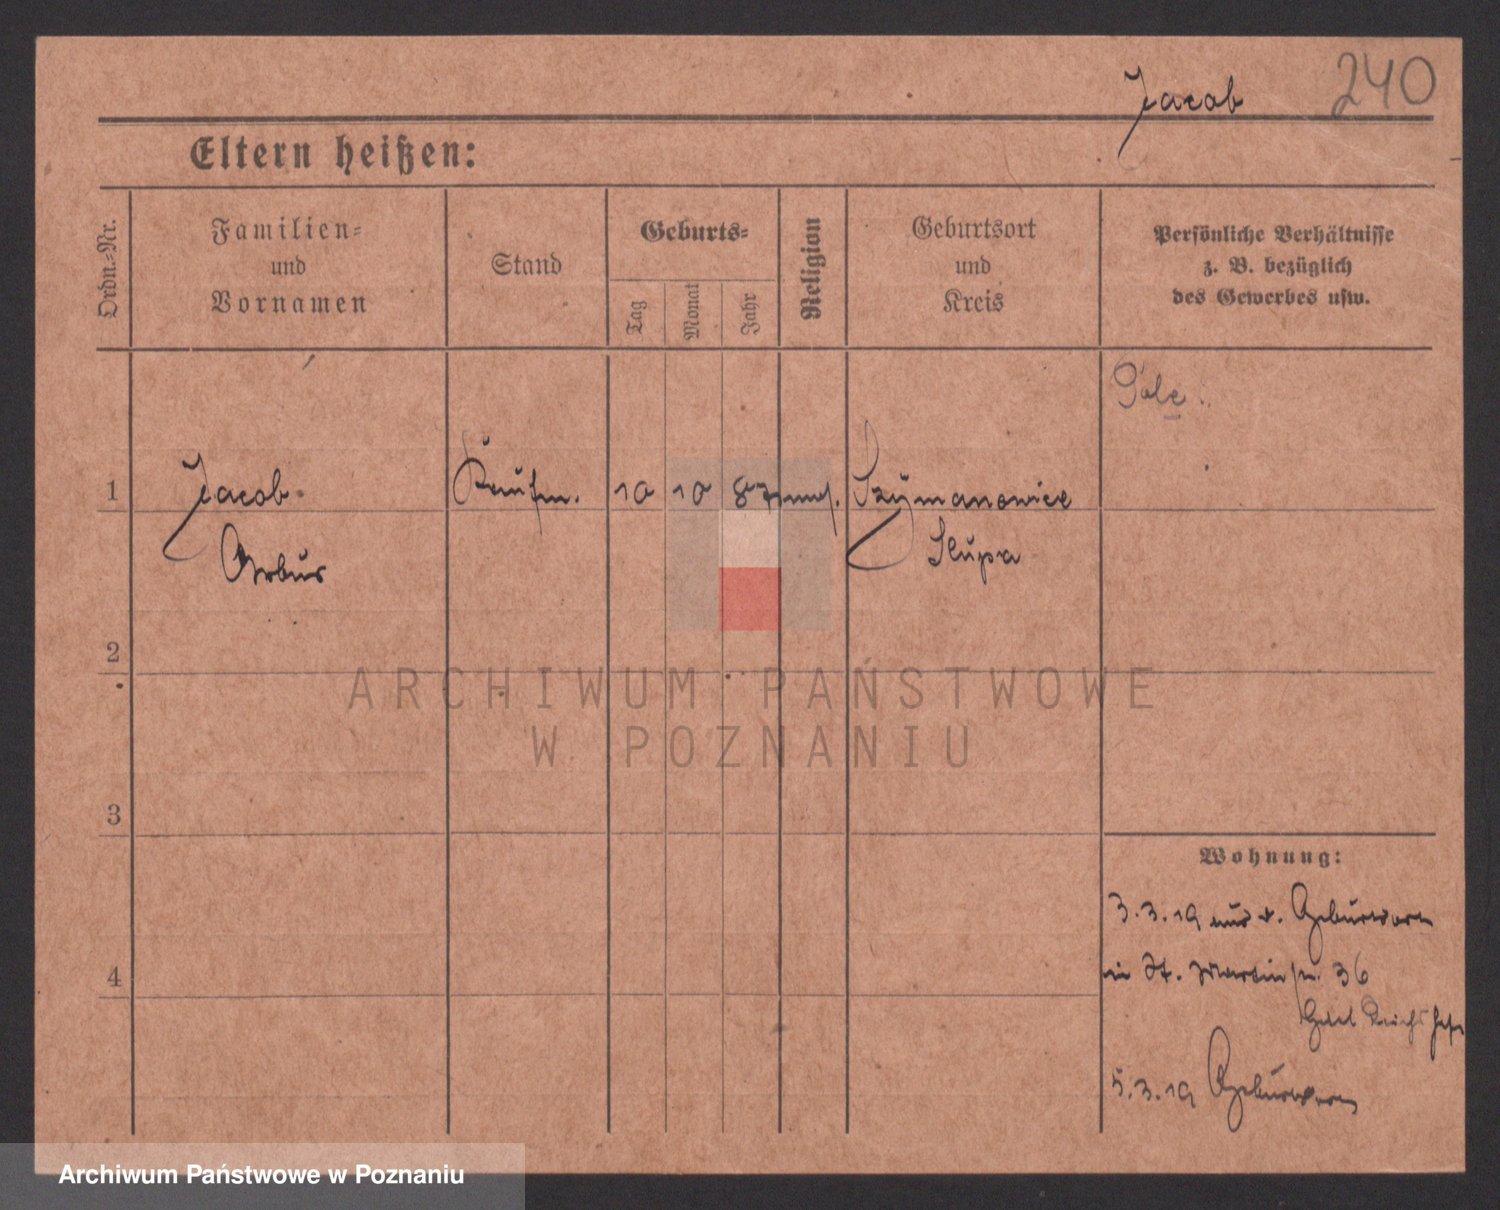 Jacob 240
Eltern heißen:
Ordn.-Nr.
Familien-
und
Vornamen
Stand
Geburts-
Tag
Monat
Jahr
Religion
Geburtsort
und
Kreis
Persönliche Verhältnisse
z. B. bezüglich
des Gewerbes usw.
Pole
1 Jacob Kaufm. 10 10 87 mos. Szymanowice
Slupa
2
3
4
Wohnung:
3.3.19 aus
in St. Martin 36
Hotel
5.3.19
ARCHIWUM PAŃSTWOWE
W POZNANIU
Archiwum Państwowe w Poznaniu